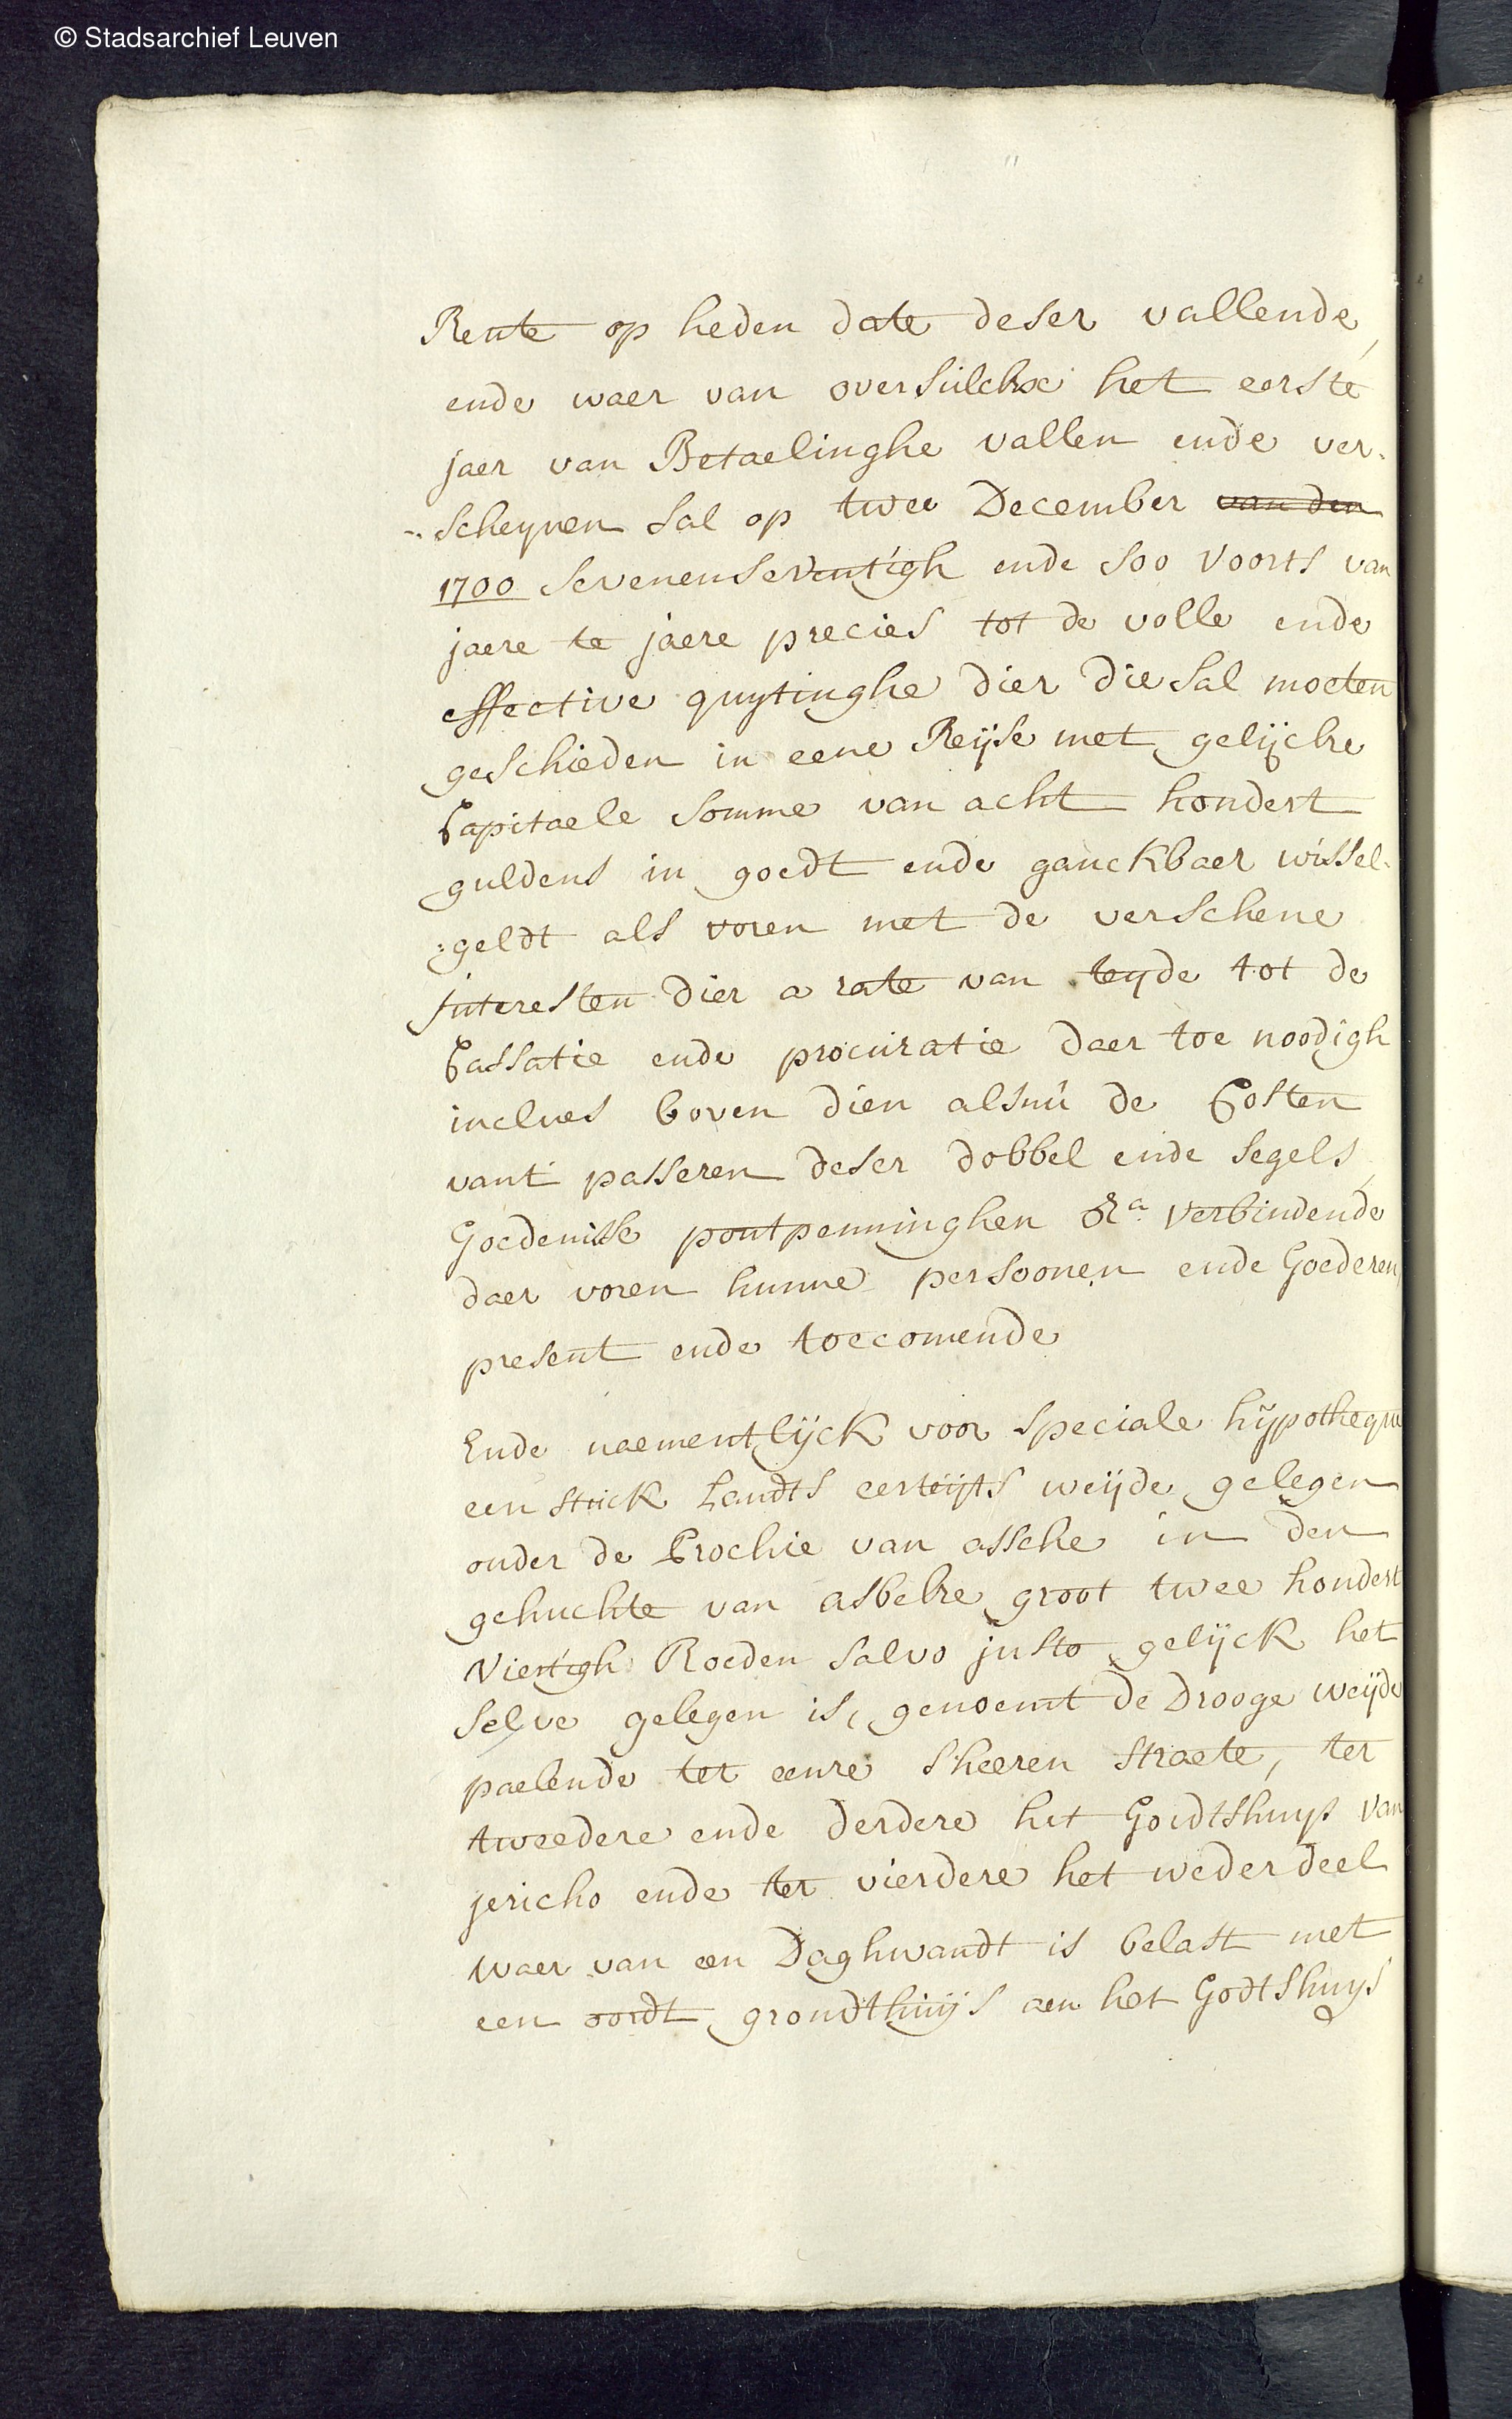 © Stadsarchief Leuven
Rente op heden date deser vallende,
ende waer van oversulckx het eerste
jaer van Betaelinghe vallen ende ver-
scheynen sal op twee December van den
1700 sevenenseventigh ende soo voorts van
jaere te jaere precies tot de volle ende
effective quytinghe dier die sal moeten
geschieden in eene Reyse met gelijcke
Capitaele somme van acht hondert
guldens in goedt ende ganckbaer wissel-
:geldt als voren met de verschene
interesten dier a rate van teyde tot de
Cassatie ende procuratie daer toe noodigh
inclues boven dien alsnu de Costen
vant passeren deser dobbel ende segels,
Goedenisse pontpenninghen &ra verbindende
daer voren hunne persoonen ende Goederen,
present ende toecomende
Ende naementlijck voor speciale hijpotheque
een stuck Landts eertijts weijde gelegen
onder de Prochie van assche in den
gehuchte van asbeke groot twee hondert
Viertigh Roeden salvo justo gelijck het
selve gelegen is, genoemt de Drooge weijde
paelende ter eenre sheeren straete, ter
tweedere ende derdere het Godtshuys van
jericho ende ter vierdere het wederdeel
waer van een Daghwandt is belast met
een oordt grondtchijs aen het Godtshuys